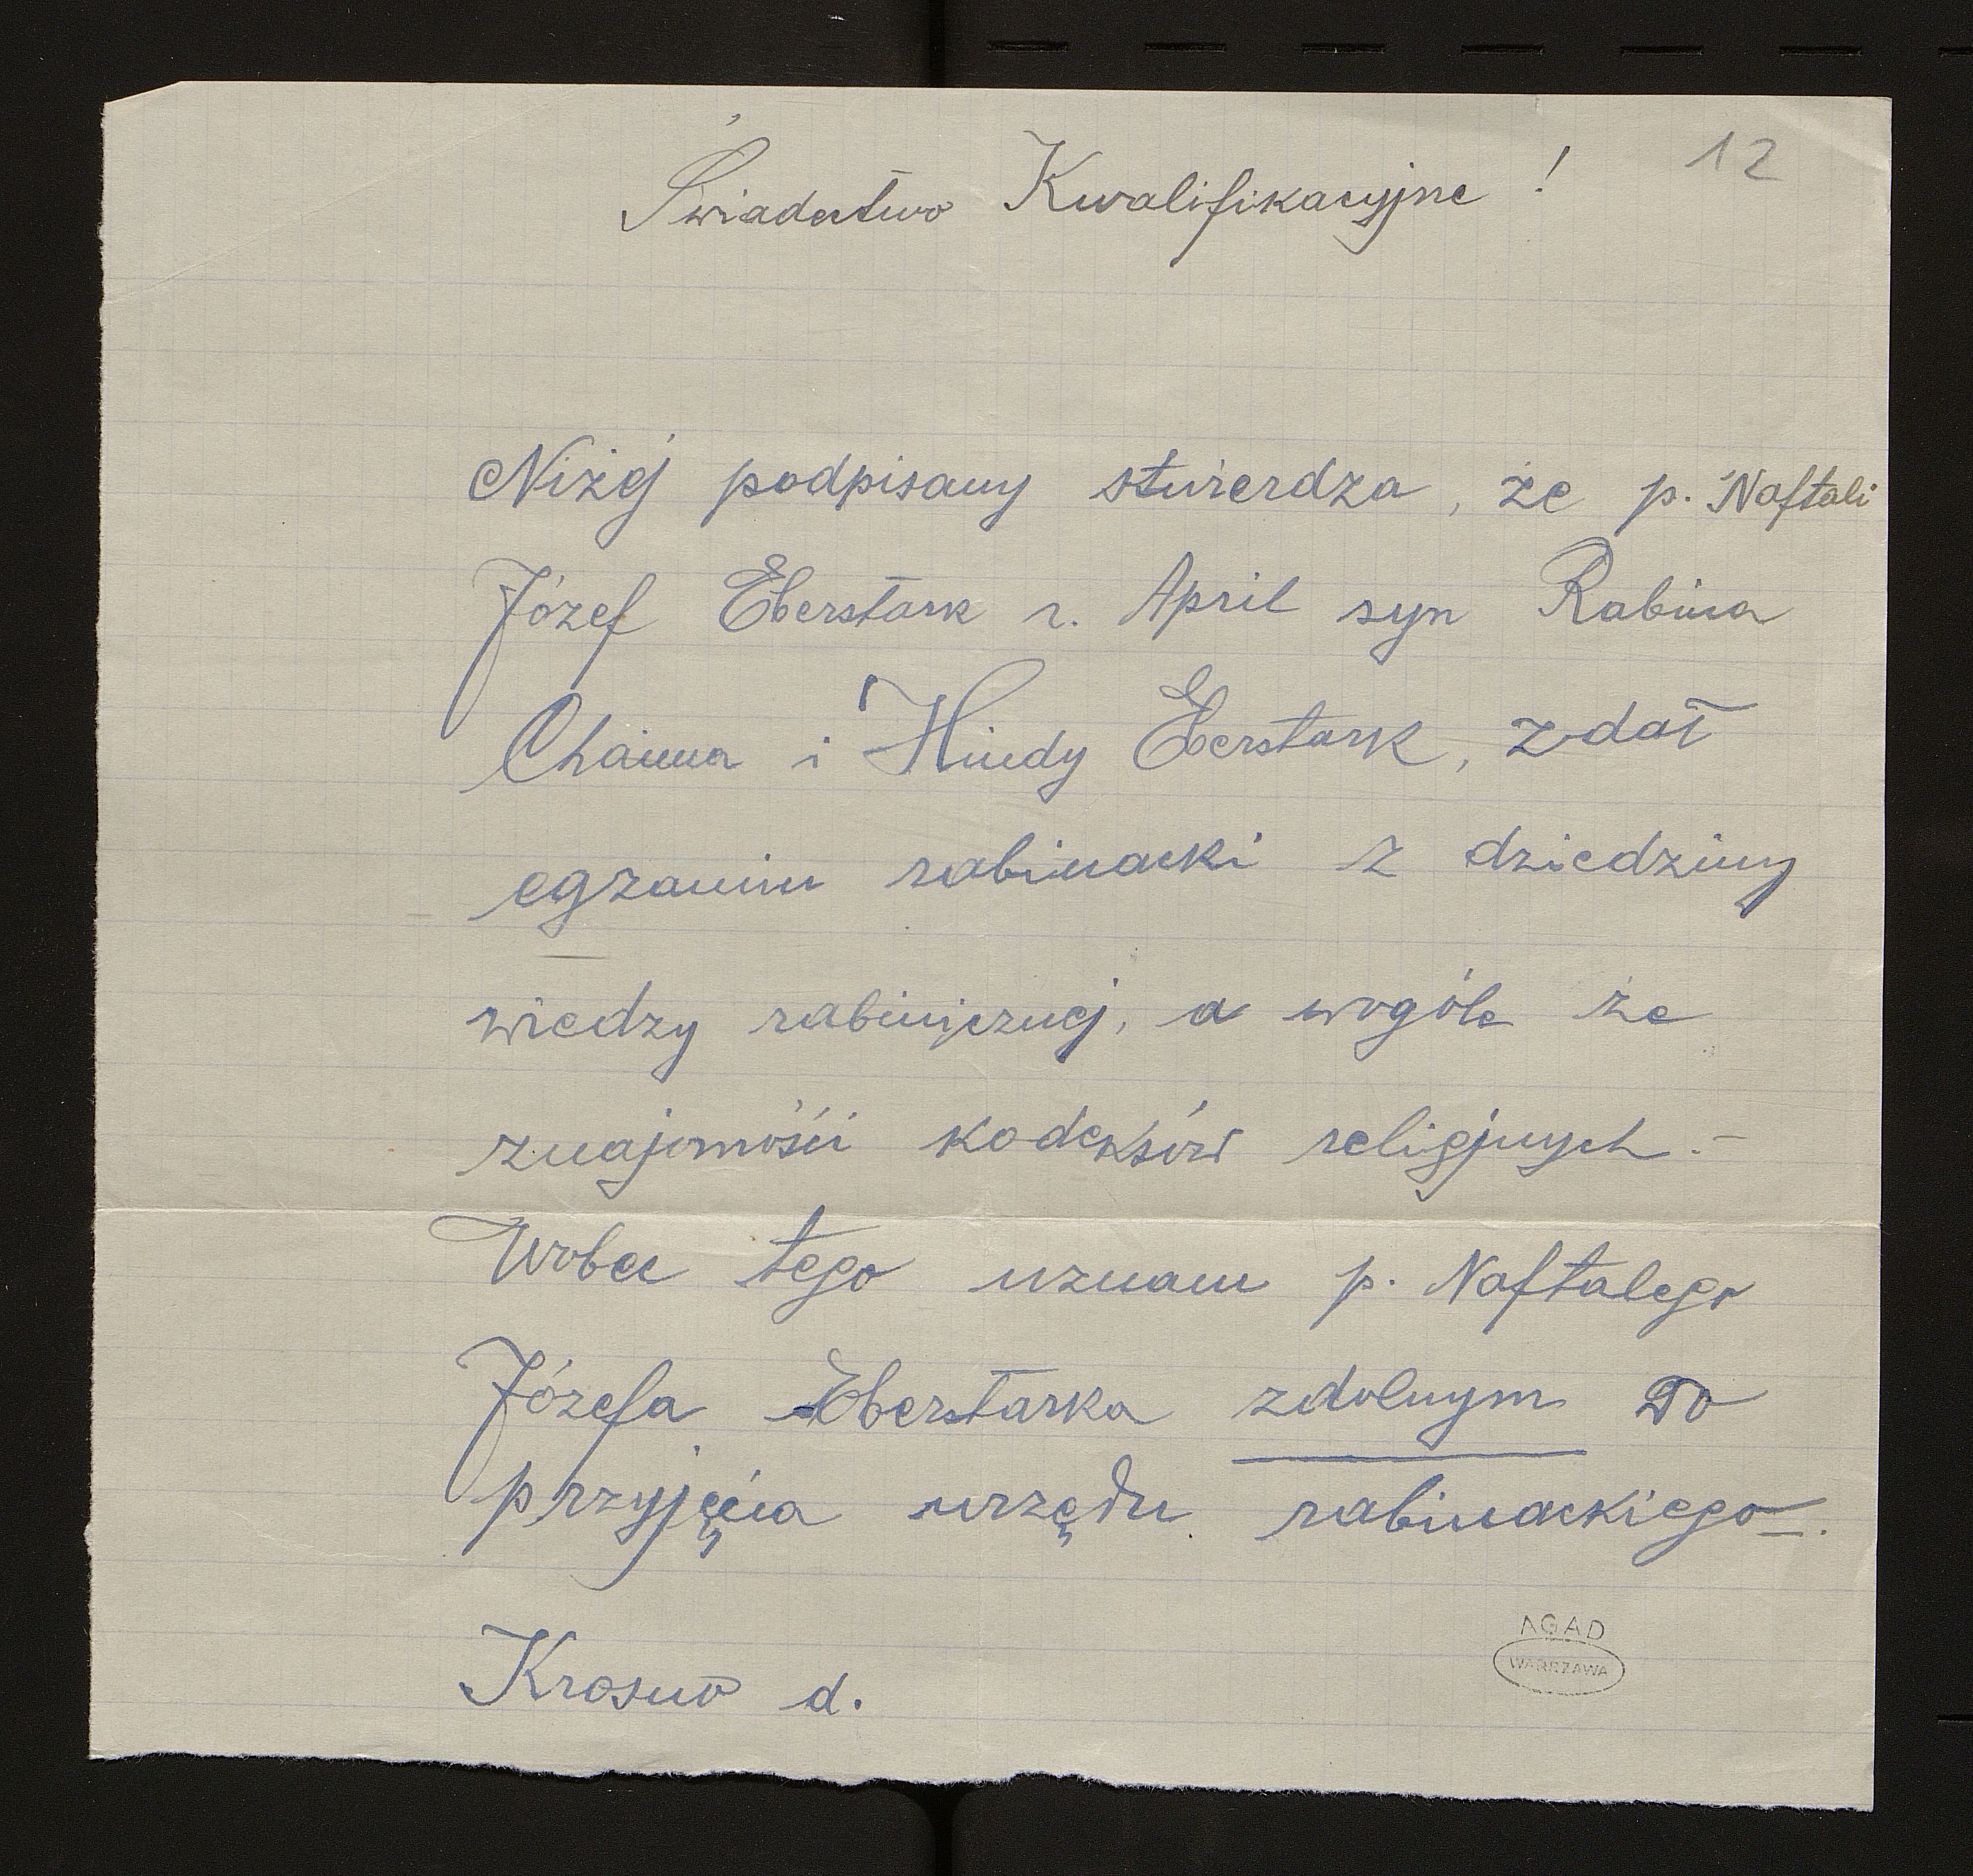 12
Świadectwo Kwalifikacyjne !
Niżej podpisany stwierdza, że p. Naftali
Józef Eberstark r. April syn Rabina
Chaima i Hindy Eberstark, zdał
egzamin rabinacki z dziedziny
wiedzy rabinicznej, a wogóle ze
znajomości kodeksów religijnych. -
Wobec tego uznam p. Naftalego
Józefa Eberstarka zdolnym do
przyjęcia urzędu rabinackiego-.
Krosno d.
AGAD
WARSZAWA